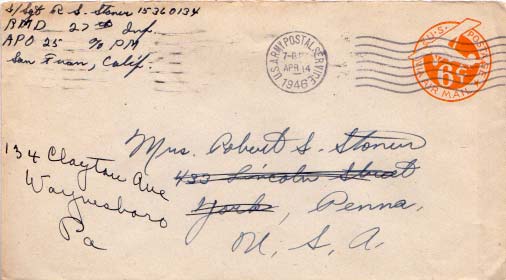 S/Sgt. R. S. Stoner 15360134
RMD 27th Inf.
APO 25 % PM
San Fran, Calif.
U.S. ARMY POSTAL SERVICE
APR 14
1946
U.S. POSTAGE
6¢
VIA AIR MAIL
Mrs. Robert S. Stoner
433 Lincoln Street
York, Penna.
U. S. A.
134 Clayton Ave
Waynesboro
Pa